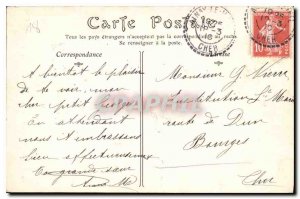 Carte Postale
Tous les pays étrangers n'acceptent pas la correspondance
Se renseigner à la poste
Correspondance
CHER
10
A bientôt le plaisir
de te voir, mon
petit
En attendant
nous t'embrassons
bien affectueusement
Ta grande sœur
Monsieur G
Institution Ste Marie
route de Dun
Bourges
Cher